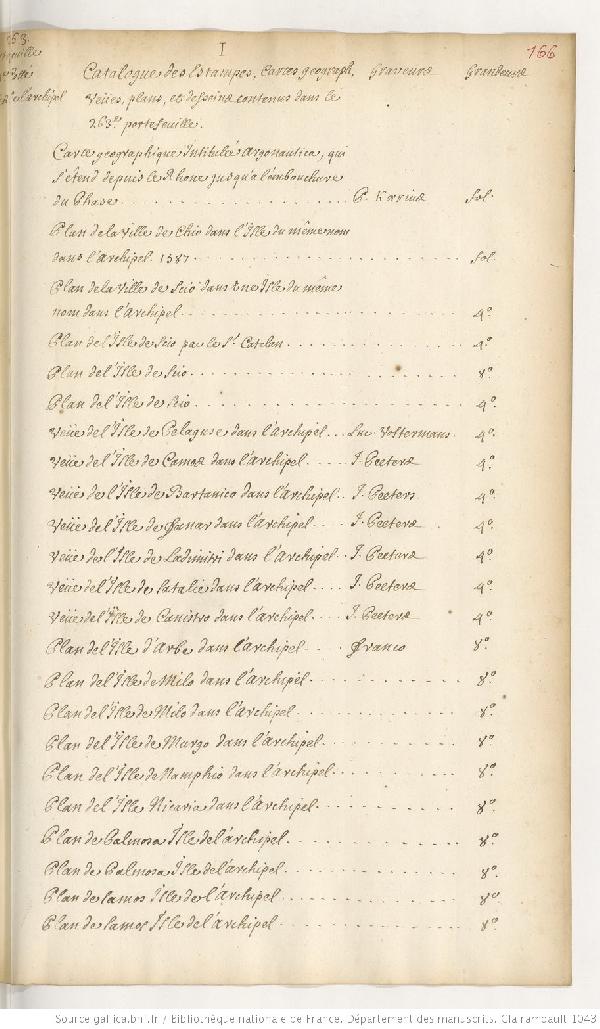 263.
I
166
Catalogue des Estampes, Cartes geograph. Graveurs Grandeurs
de l'archipel
Veües, plans, et desseins contenus dans le
263e. portefeuille.
Carte geographique Intitulée Argonautica, qui
s'étend depuis le Rhone jusqu'a l'embouchure
du Phase . . . . . . . . . . . . . fol.
Plan de la Ville de Chio dans l'Isle du même nom
dans l'archipel. 1587 . . . . . . . . . . . . . fol.
Plan de la Ville de Scio dans une Isle du même
nom dans l'Archipel . . . . . . . . . . . . . 4°.
Plan de l'Isle de Scio par le Sr. Catelin . . . . . . . . 4°.
Plan de l'Isle de Scio . . . . . . . . . . . . . 8°.
Plan de l'Isle de Scio . . . . . . . . . . . . . 4°.
Veüe de l'Isle de Pelaguse dans l'archipel . . . Luc. Voltermans . 4°.
Veüe de l'Isle de Camos dans l'archipel . . . . J. Peeters 4°.
Veüe de l'Isle de Bartanico dans l'archipel . . J. Peeters 4°.
Veüe de l'Isle de Fanar dans l'archipel . . . J. Peeters . 4°.
Veüe de l'Isle de Ladimitri dans l'archipel . . J. Peeters 4°.
Veüe de l'Isle de Catalie dans l'archipel . . . . J. Peeters 4°.
Veüe de l'Isle de Canistro dans l'archipel . . . . J. Peeters . 4°.
Plan de l'Isle d'Arbe dans l'archipel . . . . Franco 8°.
Plan de l'Isle de Milo dans l'archipel . . . . . . . . 8°.
Plan de l'Isle de Milo dans l'archipel . . . . . . . . 8°.
Plan de l'Isle de Murgo dans l'archipel . . . . . . . . 8°.
Plan de l'Isle de Namphio dans l'archipel . . . . . . . . 8°.
Plan de l'Isle Nicaria dans l'archipel . . . . . . . . 8°.
Plan de Palmosa Isle de l'archipel . . . . . . . . 8°.
Plan de Palmosa Isle de l'archipel . . . . . . . . 8°.
Plan de Samos Isle de l'archipel . . . . . . . . 8°.
Plan de Samos Isle de l'archipel . . . . . . . . 8°.
Source gallica.bnf.fr / Bibliothèque nationale de France. Département des manuscrits. Clairambault 1043